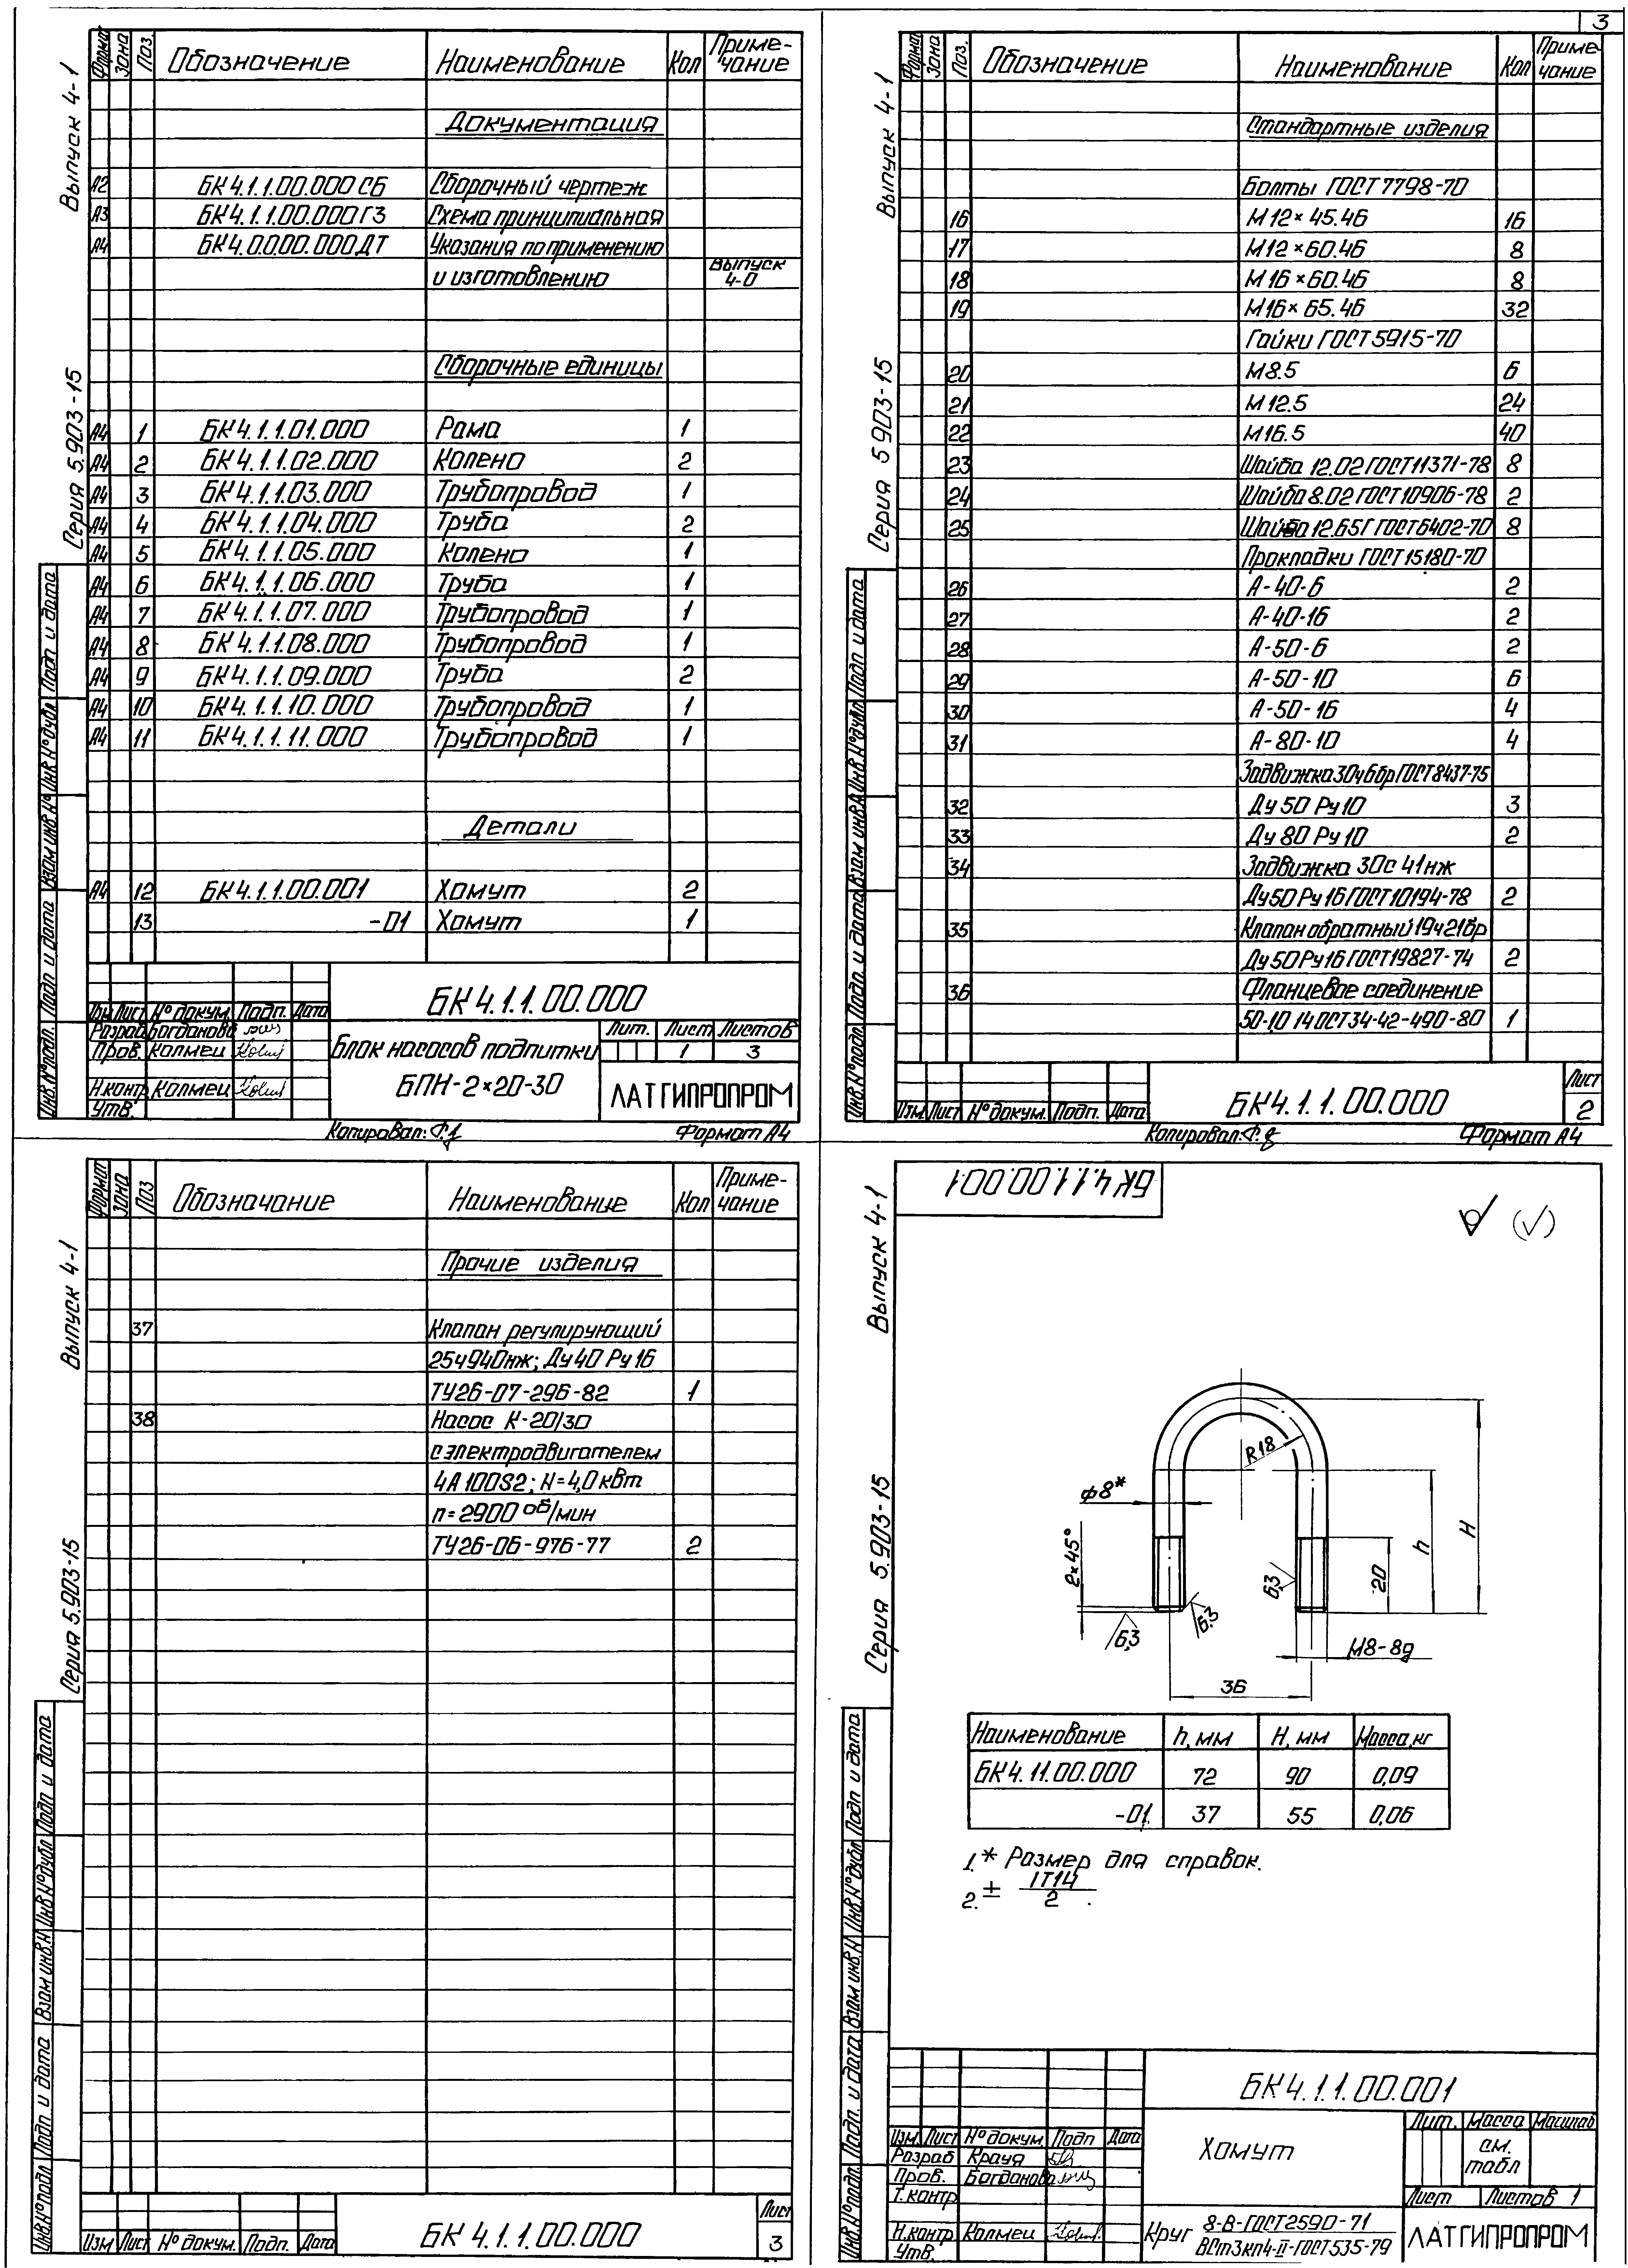 3
Выпуск 4-1
Серия 5.903-15
Формат Зона Поз. Обозначение Наименование Кол Приме-чание
Документация
А2 БК4.1.1.00.000СБ Сборочный чертеж
А3 БК4.1.1.00.000ГЗ Схема принципиальная
А4 БК4.0.0.00.000ДТ Указания по применению
и изготовлению Выпуск 4-0
Сборочные единицы
А4 1 БК4.1.1.01.000 Рама 1
А4 2 БК4.1.1.02.000 Колено 2
А4 3 БК4.1.1.03.000 Трубопровод 1
А4 4 БК4.1.1.04.000 Труба 2
А4 5 БК4.1.1.05.000 Колено 1
А4 6 БК4.1.1.06.000 Труба 1
А4 7 БК4.1.1.07.000 Трубопровод 1
А4 8 БК4.1.1.08.000 Трубопровод 1
А4 9 БК4.1.1.09.000 Труба 2
А4 10 БК4.1.1.10.000 Трубопровод 1
А4 11 БК4.1.1.11.000 Трубопровод 1
Детали
А4 12 БК4.1.1.00.001 Хомут 2
13 -01 Хомут 1
Инв.№подл. Подп и дата Взам инв.№ Инв №дубл Подп и дата
БК4.1.1.00.000
Изм Лист №докум. Подп. Дата
Разраб Богданова
Пров. Колмец
Н.контр Колмец
Утв.
Блок насосов подпитки
БПН-2×20-30
Лит. Лист Листов
1 3
ЛАТГИПРОПРОМ
Копировал: Формат А4
Выпуск 4-1
Серия 5.903-15
Формат Зона Поз. Обозначение Наименование Кол Приме-чание
Стандартные изделия
Болты ГОСТ 7798-70
16 М12×45.46 16
17 М12×60.46 8
18 М16×60.46 8
19 М16×65.46 32
Гайки ГОСТ 5915-70
20 М8.5 6
21 М12.5 24
22 М16.5 40
23 Шайба 12.02 ГОСТ11371-78 8
24 Шайба 8.02 ГОСТ10906-78 2
25 Шайба 12.65Г ГОСТ6402-70 8
Прокладки ГОСТ15180-70
26 А-40-6 2
27 А-40-16 2
28 А-50-6 2
29 А-50-10 6
30 А-50-16 4
31 А-80-10 4
Задвижка30ч6бр ГОСТ8437-75
32 Ду 50 Ру 10 3
33 Ду 80 Ру 10 2
34 Задвижка 30с 41нж
Ду50 Ру 16 ГОСТ10194-78 2
35 Клапан обратный 19ч21бр
Ду 50 Ру16 ГОСТ19827-74 2
36 Фланцевое соединение
50-10 14 ОСТ34-42-490-80 1
Инв.№подл. Подп. и дата Взам инв.№ Инв.№дубл Подп и дата
Изм Лист №докум. Подп. Дата
БК4.1.1.00.000
Лист
2
Копировал: Формат А4
Выпуск 4-1
Серия 5.903-15
Формат Зона Поз Обозначание Наименование Кол Приме-чание
Прочие изделия
37 Клапан регулирующий
25ч940нж; Ду40 Ру16
ТУ26-07-296-82 1
38 Насос К-20/30
с электродвигателем
4А100S2; N=4,0 кВт
п=2900 об/мин
ТУ26-06-976-77 2
Инв.№подл Подп. и дата Взам инв.№ Инв.№дубл Подп и дата
Изм Лист №докум. Подп. Дата
БК4.1.1.00.000
Лист
3
Выпуск 4-1
Серия 5.903-15
БК 4.1.1 00.001
(√)
R18
ф8*
2×45°
6,3
6,3
6,3
20
h
H
М8-8g
36
Наименование h, мм H, мм Масса,кг
БК4.11.00.000 72 90 0,09
-01. 37 55 0,06
1.* Размер для справок.
2. ± IT14/2.
Инв.№подл. Подп. и дата Взам инв.№ Инв.№дубл Подп и дата
БК4.1.1.00.001
Изм Лист №докум. Подп Дата
Разраб Крауя
Пров. Богданова
Т.контр
Н.контр Колмец
Утв.
Хомут
Лит. Масса Масштаб
см. табл
Лист Листов 1
Круг 8-В-ГОСТ2590-71
ВСт3кп4-II-ГОСТ535-79
ЛАТГИПРОПРОМ